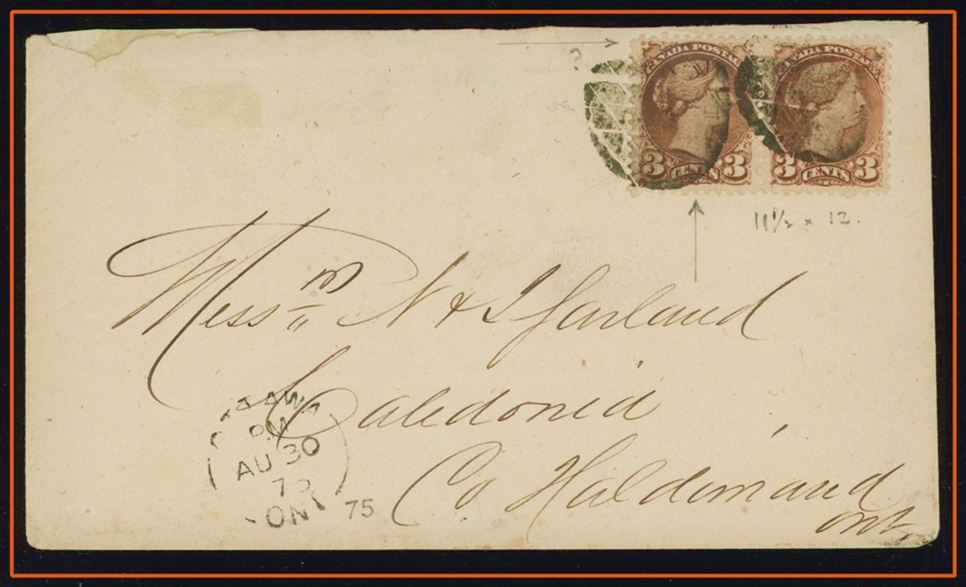 ?
CANADA POSTAGE CANADA POSTAGE
3 CENTS 3 3 CENTS 3
11 1/2 x 12.
Messrs N & J Garland
Caledonia,
Co Haldimand
Ont.
OTTAWA
PM
AU 30
75
ONT
75